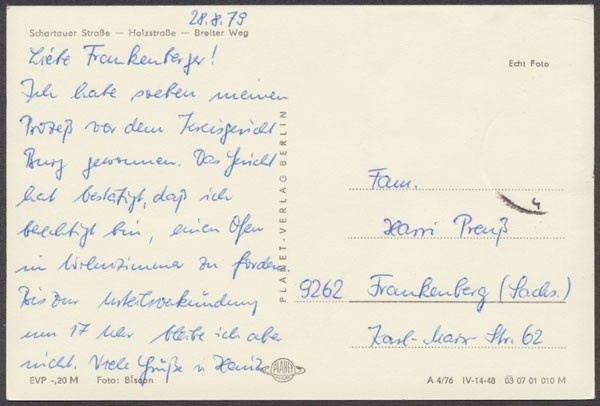 28.8.79
Schartauer Straße — Holzstraße — Breiter Weg
Liebe Frankenberger!
Ich habe soeben meinen
Prozeß vor dem Kreisgericht
Burg gewonnen. Das Gericht
hat bestätigt, daß ich
berechtigt bin, einen Ofen
im Wohnzimmer zu fordern
Bis zur Urteilsverkündung
um 17 Uhr bleibe ich aber
nicht. Viele Grüße v.
EVP -,20 M Foto: Biscan
PLANET-VERLAG BERLIN
PLANET
Echt Foto
4
Fam.
Harri Preuß
9262 Frankenberg (Sachs.)
Karl-Marx-Str. 62
A 4/76 IV-14-48 03 07 01 010 M